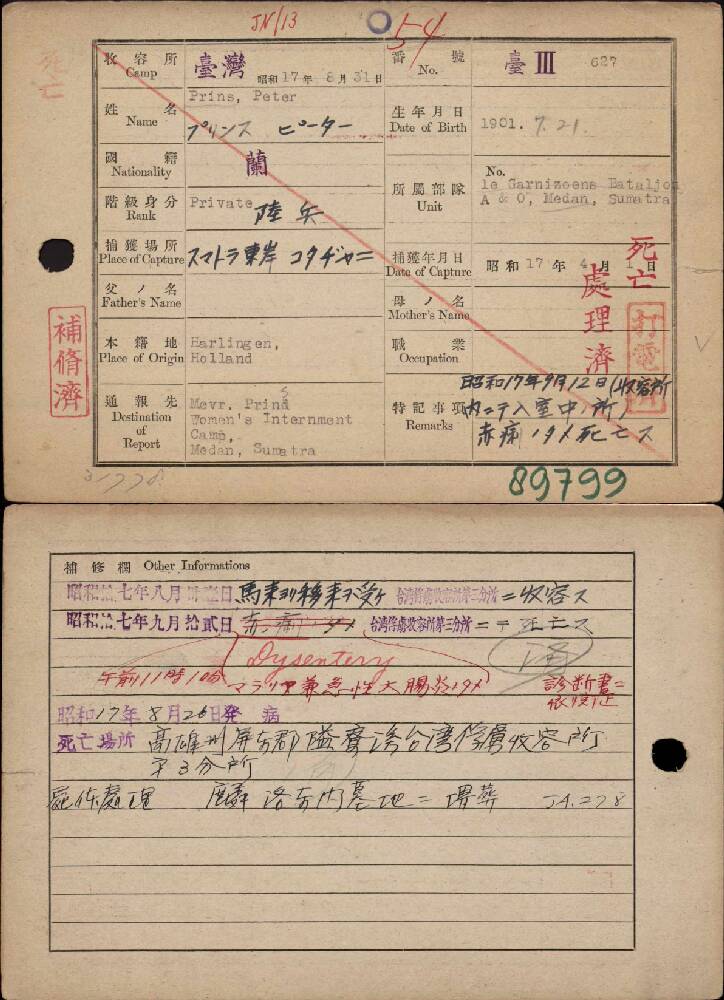 JN/13
54
死亡
收容所 Camp 臺灣 昭和17年8月31日
番號 No. 臺 III 627
姓名 Name Prins, Peter
プリンス ピーター
生年月日 Date of Birth 1901. 7. 21.
國籍 Nationality 蘭
階級身分 Rank Private 陸兵
所屬部隊 Unit No.
1e Garnizoens Bataljon
A & O, Medan, Sumatra
捕獲場所 Place of Capture スマトラ東岸 コタヂャニ
捕獲年月日 Date of Capture 昭和17年4月1日
父ノ名 Father's Name
母ノ名 Mother's Name
死亡
處理濟
打電濟
補脩濟
本籍地 Place of Origin Harlingen,
Holland
職業 Occupation
通報先 Destination of Report
Mevr. Prins
Women's Internment
Camp,
Medan, Sumatra
特記事項 Remarks
昭和17年9月12日(收容所
内ニテ入室中ノ所)
赤痢ノタメ死亡ス
89799
補修欄 Other Informations
昭和拾七年八月卅壹日 馬来ヨリ移来ヲ受ケ 台湾俘虜收容所第三分所ニ收容ス
昭和拾七年九月拾貳日 赤痢ノタメ 台湾俘虜收容所第三分所ニテ死亡ス
Dysentery
午前11時10分
マラリア兼急性大腸炎ノタメ
診断書ニ
依リ訂正
昭和17年8月26日発病
死亡場所 高雄州屏東郡 台湾俘虜收容所
第3分所
死体處理 麟洛 内墓地ニ埋葬 JA.278